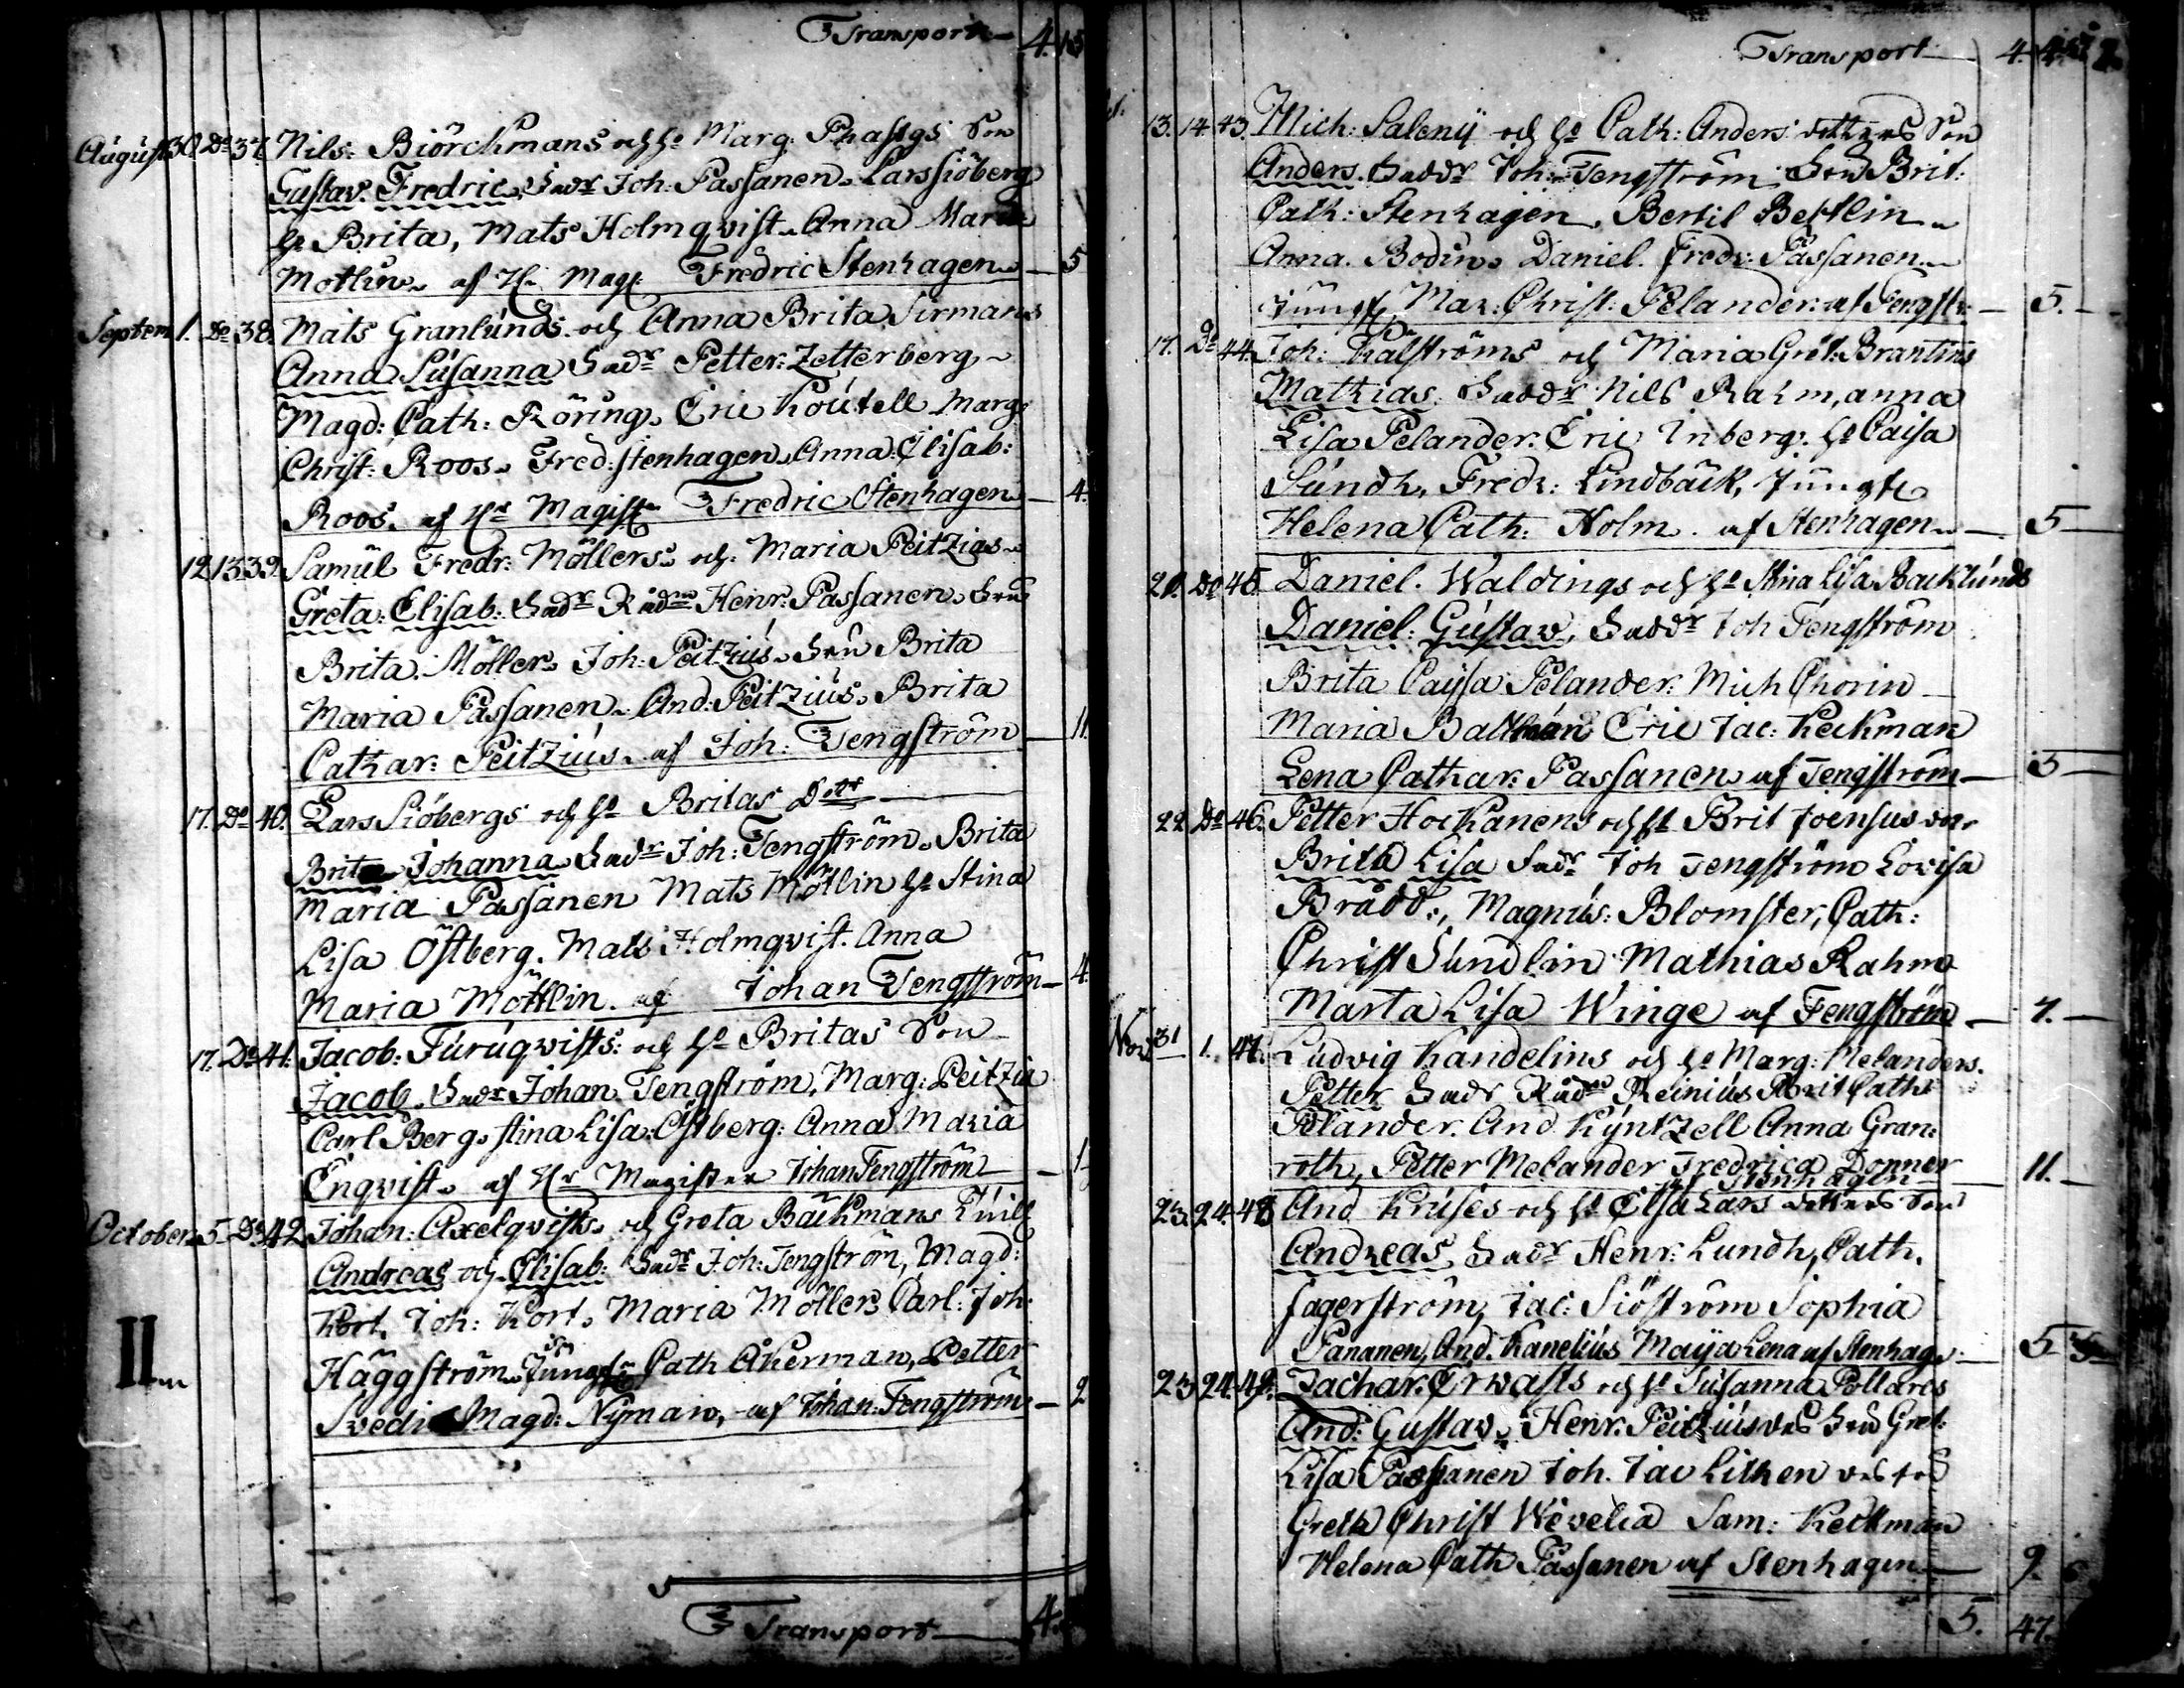 Transport 4. 15
August 30. Do 37. Nils: Biörckmans och h: Marg: Phasgs Son
Gustav: Fredric, Fadr Joh: Passanen, Lars Siöberg
h: Brita, Mats Holmqvist, Anna Maria
Motlin, af H: Mag: Fredric Stenhagen — 5
Septem 1. Do 38. Mats Granlunds och Anna Brita Sirmans
Anna Susanna Fadr Petter: Zetterberg
Magd: Cath: Röring, Eric Koutell Marg:
Christ: Roos, Fred: Stenhagen, Anna: Elisab:
Roos, af Hr Magist Fredric Stenhagen — 4.
12 13 39. Samül Fredr: Möllers och Maria Peitzias
Greta: Elisab: Fadr Rådm Henr: Passanen, Fru
Brita: Möller, Joh: Peitzius, Fru Brita
Maria Passanen, And: Peitzius, Brita
Cathar: Peitzius, af Joh: Tengström — 11
17. Do 40. Lars Siöbergs och h: Britas Dottr
Brita Johanna Fadr Joh: Tengström, Brita
Maria Passanen Mats Mötlin h: Stina
Lisa Östberg, Mats Holmqvist. Anna
Maria Möttlin. af Johan Tengström — 4.
17. Do 41. Jacob: Furuqvists: och h: Britas Son
Jacob, Fadr Johan Tengström, Marg: Peitzia
Carl Berg, Stina Lisa: Östberg: Anna Maria
Enqvist, af Hr Magister Johan Tengström — 1
October 5 Do 42. Johan: Axelqvists, och Greta Bäckmans Tvill
Andreas och Elisab: Fadr Joh: Tengström, Magd:
Kort, Joh: Kort, Maria Möller, Carl: Joh:
Häggström, Jungfr Cath Åkerman, Petter
Svedi Magd: Nyman, af Johan: Tengström — 2
II
Transport 4.
Transport 4.
13. 14 43. Mich: Salenii och h: Cath: Anders dotters Son
Anders. Faddr Joh: Tengström Fru Brit:
Cath: Stenhagen, Bertil Bettlin
Anna. Bodin, Daniel. Fredr: Passanen
Jungf: Mar: Christ: Pelander: af Tengstr: — 5. —
17. Do 44. Joh: Kalströms och Maria Gret: Brantins
Mathias. Faddr Nils Rahm, anna
Lisa Pelander. Eric Inberg. h: Caisa
Sundh, Fredr: Lindbäck, Jungfr
Helena Cath: Holm. af Stenhagen — 5 —
20. Do 45 Daniel. Waldings och h: Stina Lisa Backlunds
Daniel: Gustav, Faddr Joh Tengström
Brita Caysa Pelander: Mich Chorin
Maria Eric Jac: Keckman
Lena Cathar: Passanen af Tengström — 5 —
22 Do 46. Petter Hockanens och h: Brit Joensus
Brita Lisa Fadr Joh Tengström Lovisa
Brådd:, Magnus: Blomster, Cath:
Christ Sundlin Mathias Rahm
Marta Lisa Winge af Tengström — 7. —
Nov 31 1. 47. Ludvig Kandelins och h: Marg: Melanders.
Petter Fadr Rådm Reinius Brit Cath:
Pelander. And Kyntzell Anna Gran:
roth, Petter Melander Fredrica Donner
af Stenhagen — 11. —
23. 24. 48 And Kruses och h: Elsa Lars dotters Son
Andreas, Fadr Henr: Lundh, Cath.
Fagerström, Jac: Siöström Sophia
Pananen, And. Kanelius Maija Lena af Stenhag — 5
23 24. 49. Zachar. Erwasts och h: Susanna Pollares
And: Gustav, Henr: Peitzius Fru Gret:
Lisa Passanen Joh. Jac Lithen
Greta Christ Wevelia Sam: Keckman
Helena Cath Passanen af Stenhagen — 9.
5. 47.